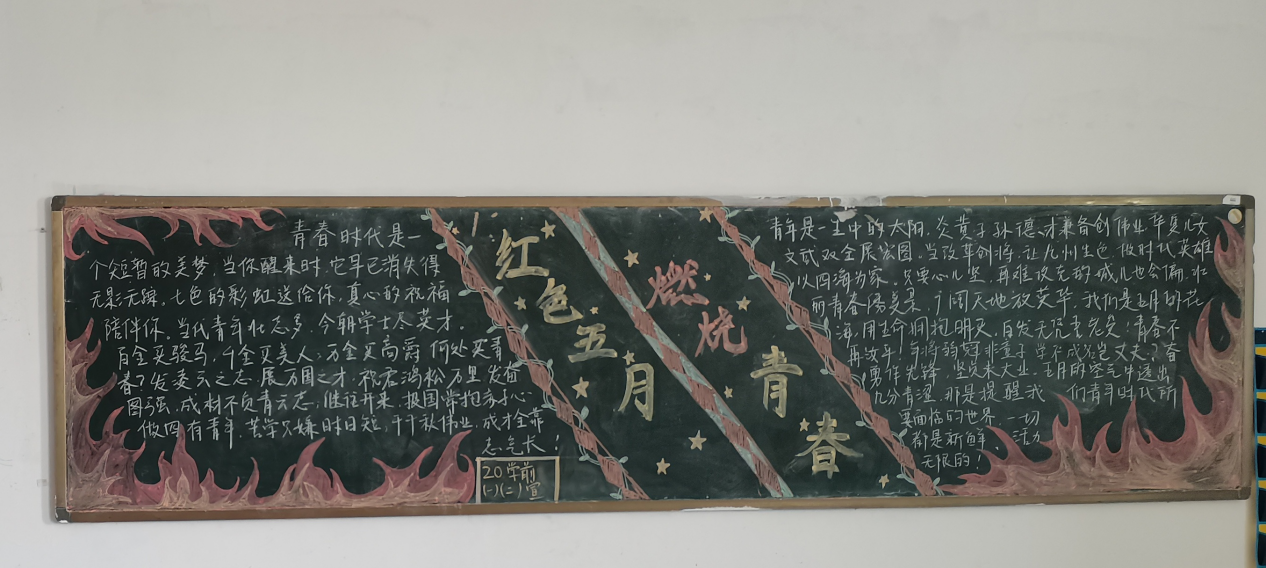 青春时代是一
个短暂的美梦,当你醒来时,它早已消失得
无影无踪。七色的彩虹送给你,真心的祝福
陪伴你。当代青年壮志多,今朝学士尽英才。
百金买骏马,千金买美人;万金买高爵,何处买青
春?发凌云之志,展万国之才,祝君鸿松万里,发奋
图强,成材不负青云志,继往开来,报国常抱赤子心
做四有青年,苦学只嫌时日短,千秋伟业,成才全靠
志气长!
20学前
(一)(二)宣
红色五月
燃烧
青春
青年是一生中的太阳,炎黄子孙德才兼备创伟业,华夏儿女
文武双全展宏图。当改革创将,让九州生色,做时代英雄
以四海为家。只要心儿坚,再难攻克的城儿也会偏,壮
丽青春陽美景,广阔天地放英华,我们是五月的花
海,用生命拥抱明天,白发无凭吾老矣!青春不
再汝年!将弱冠非童子,学不成岂丈夫?奋
勇作先锋,坚实未大业,五月的空气中透出
几分青涩,那是提醒我们青年时代所
要面临的世界,一切
都是新鲜、活力
无限的!